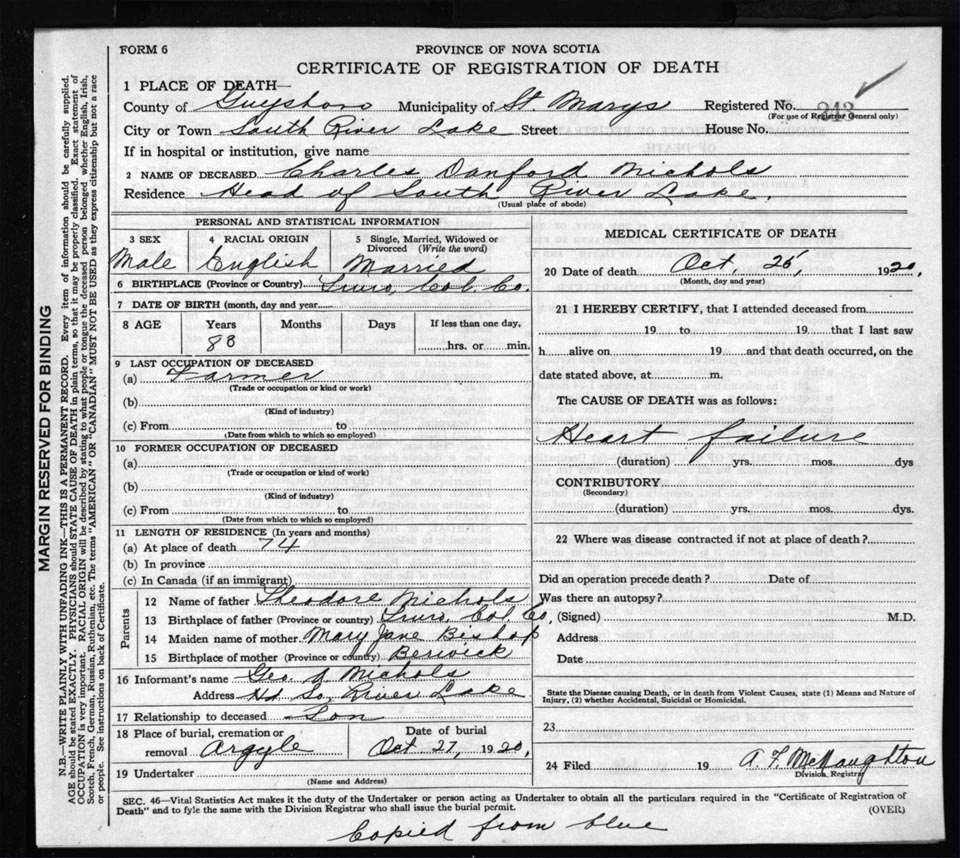 FORM 6
PROVINCE OF NOVA SCOTIA
CERTIFICATE OF REGISTRATION OF DEATH
1 PLACE OF DEATH—
County of Guysboro Municipality of St. Marys Registered No. 243
(For use of Registrar General only)
City or Town South River Lake Street House No.
If in hospital or institution, give name
2 NAME OF DECEASED Charles Danford Nichols
Residence Head of South River Lake.
(Usual place of abode)
PERSONAL AND STATISTICAL INFORMATION
3 SEX
Male
4 RACIAL ORIGIN
English
5 Single, Married, Widowed or Divorced (Write the word)
Married
6 BIRTHPLACE (Province or Country) Truro, Col. Co.
7 DATE OF BIRTH (month, day and year)
8 AGE Years Months Days If less than one day,
83 hrs. or min.
9 LAST OCCUPATION OF DECEASED
(a) Farmer
(Trade or occupation or kind or work)
(b)
(Kind of industry)
(c) From to
(Date from which to which so employed)
10 FORMER OCCUPATION OF DECEASED
(a)
(Trade or occupation or kind of work)
(b)
(Kind of industry)
(c) From to
(Date from which to which so employed)
11 LENGTH OF RESIDENCE (In years and months)
(a) At place of death 74
(b) In province
(c) In Canada (if an immigrant)
Parents
12 Name of father Theodore Nichols
13 Birthplace of father (Province or country) Truro Col. Co.
14 Maiden name of mother Mary Jane Bishop
15 Birthplace of mother (Province or country) Berwick
16 Informant's name Geo. A Nichols
Address Hd So, River Lake
17 Relationship to deceased Son
18 Place of burial, cremation or removal Argyle
Date of burial
Oct 27, 1920,
19 Undertaker
(Name and Address)
MEDICAL CERTIFICATE OF DEATH
20 Date of death Oct, 25, 1920,
(Month, day and year)
21 I HEREBY CERTIFY, that I attended deceased from
19 to 19 that I last saw
h alive on 19 and that death occurred, on the
date stated above, at m.
The CAUSE OF DEATH was as follows:
Heart failure
(duration) yrs. mos. dys
CONTRIBUTORY
(Secondary)
(duration) yrs. mos. dys.
22 Where was disease contracted if not at place of death?
Did an operation precede death? Date of
Was there an autopsy?
(Signed) M.D.
Address
Date
State the Disease causing Death, or in death from Violent Causes, state (1) Means and Nature of
Injury, (2) whether Accidental, Suicidal or Homicidal.
23
24 Filed 19 A. F. McNaughton
Division Registrar
SEC. 46—Vital Statistics Act makes it the duty of the Undertaker or person acting as Undertaker to obtain all the particulars required in the "Certificate of Registration of
Death" and to fyle the same with the Division Registrar who shall issue the burial permit.
(OVER)
Copied from blue
MARGIN RESERVED FOR BINDING
N.B.—WRITE PLAINLY WITH UNFADING INK—THIS IS A PERMANENT RECORD. Every item of information should be carefully supplied.
AGE should be stated EXACTLY. PHYSICIANS should STATE CAUSE OF DEATH in plain terms, so that it may be properly classified. Exact Statement of
OCCUPATION is very important. RACIAL ORIGIN will be described by stating to what people or tongue the deceased person belonged whether English, Irish,
Scotch, French, German, Russian, Ruthenian, etc. The terms "AMERICAN" OR "CANADIAN" MUST NOT BE USED as they express citizenship but not a race
or people. See instructions on back of Certificate.